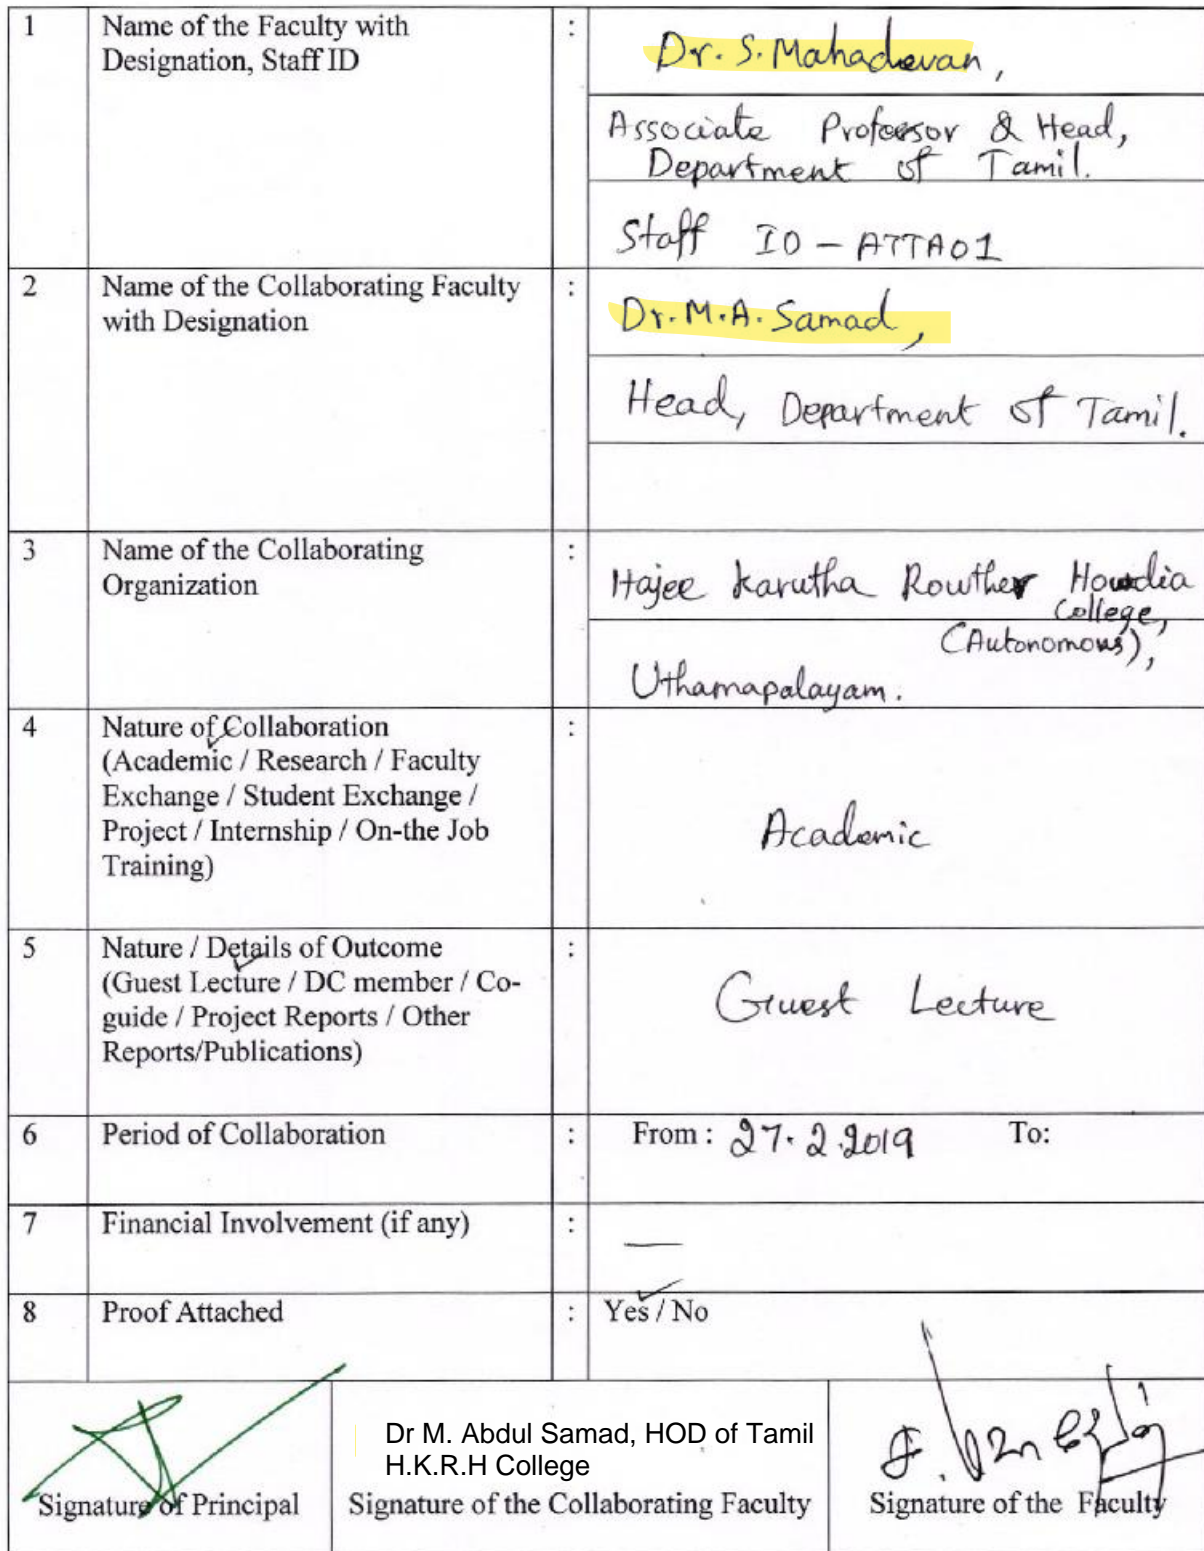 1 Name of the Faculty with : Dr. S. Mahadevan,
Designation, Staff ID
Associate Professor & Head,
Department of Tamil.
Staff ID - ATTA01
2 Name of the Collaborating Faculty : Dr. M.A. Samad,
with Designation
Head, Department of Tamil.
3 Name of the Collaborating :
Organization Hajee Karutha Rowther Howdia
College,
(Autonomous),
Uthamapalayam.
4 Nature of Collaboration :
(Academic / Research / Faculty
Exchange / Student Exchange /
Project / Internship / On-the Job Academic
Training)
5 Nature / Details of Outcome :
(Guest Lecture / DC member / Co-
guide / Project Reports / Other Guest Lecture
Reports/Publications)
6 Period of Collaboration : From : 27.2.2019 To:
7 Financial Involvement (if any) : —
8 Proof Attached : Yes / No
Dr M. Abdul Samad, HOD of Tamil
H.K.R.H College
Signature of Principal Signature of the Collaborating Faculty Signature of the Faculty